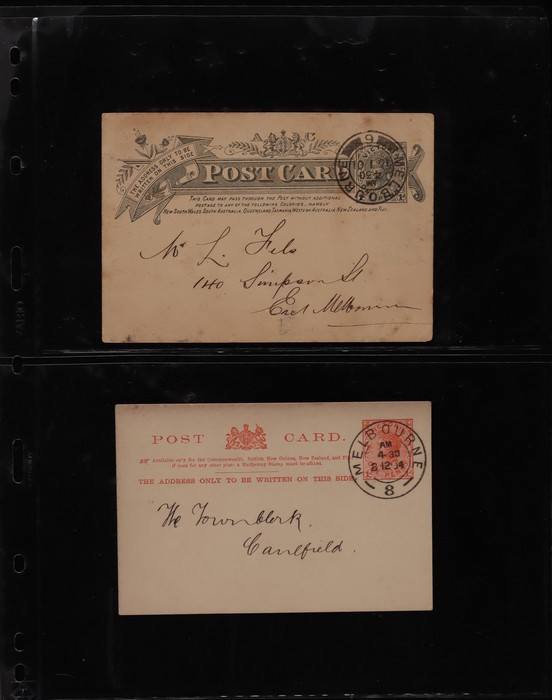 A C
THE ADDRESS ONLY TO BE
WRITTEN ON THIS SIDE
POST CAR
MELBOURNE
THIS CARD MAY PASS THROUGH THE POST WITHOUT ADDITIONAL
POSTAGE TO ANY OF THE FOLLOWING COLONIES, NAMELY
NEW SOUTH WALES, SOUTH AUSTRALIA, QUEENSLAND, TASMANIA, WESTERN AUSTRALIA, NEW ZEALAND AND FIJI.
Mr L. Fels
140 Simpson St.
East Melbourne
POST CARD.
Available only for the Commonwealth, British New Guinea, New Zealand, and
if sent for any other place a Halfpenny Stamp must be affixed.
THE ADDRESS ONLY TO BE WRITTEN ON THIS SIDE.
MELBOURNE
AM
4-30
8 12 04
8
The Town Clerk.
Caulfield.